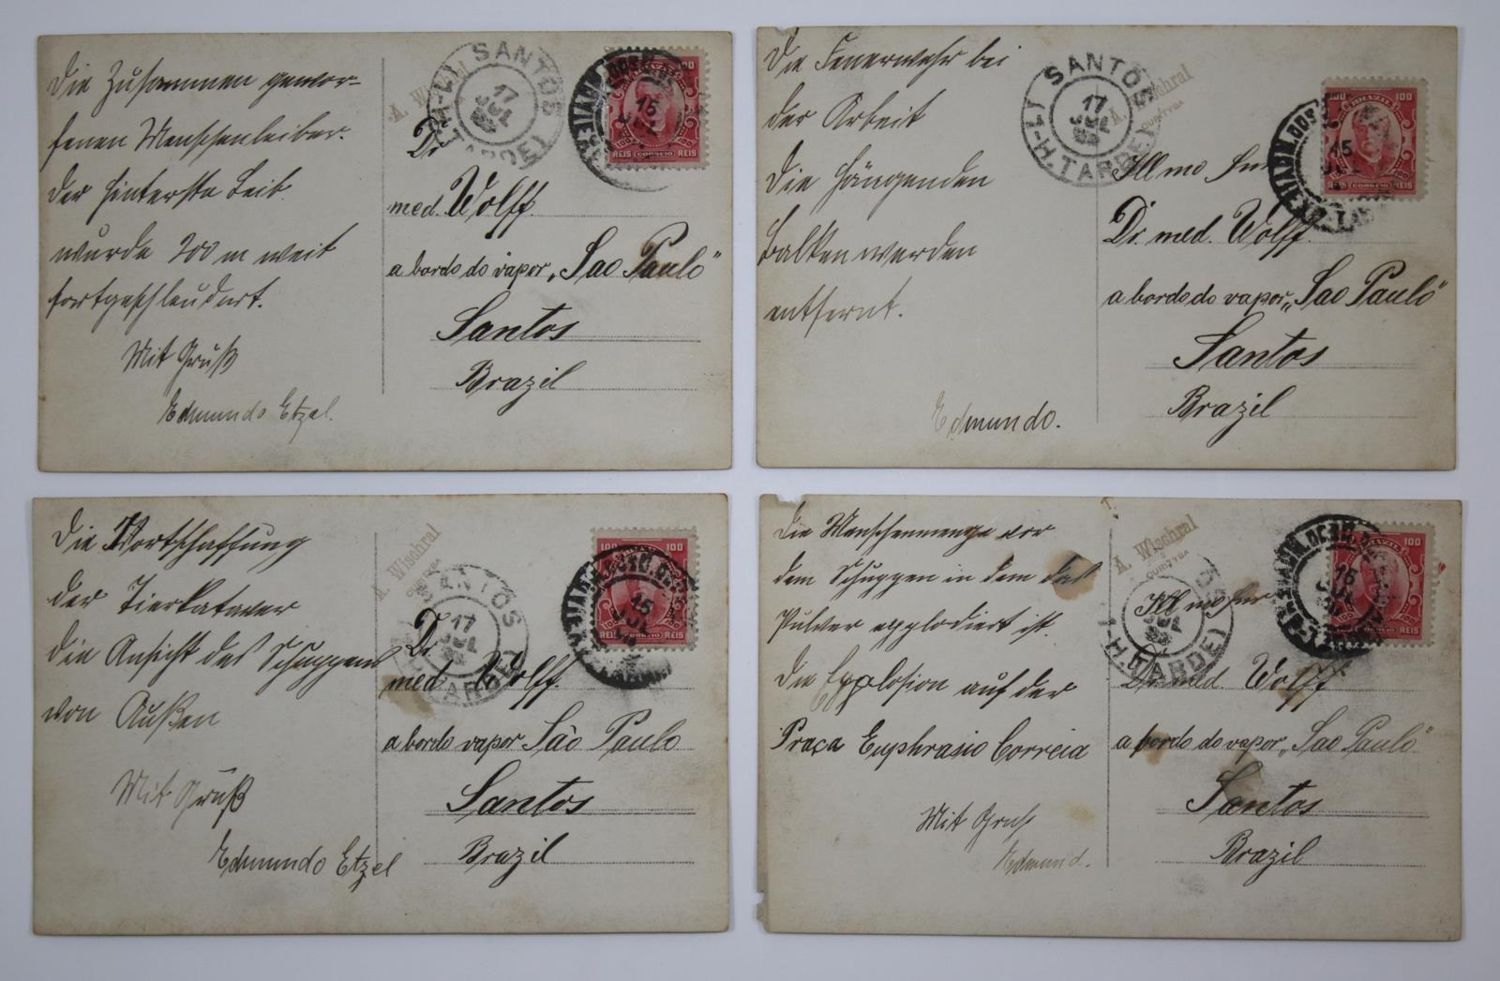 Die Zusammen gewor-
fenen Menschenleiber.
der hinterste Leib
wurde 200 m weit
fortgeschleudert.
Mit Gruß
Edmundo Etzel.
A. Wischral
SANTOS
17
JUL
H-TARDE
15
REIS CORREIO REIS
Dr
med. Wolff.
a bordo do vapor „Sao Paulo"
Santos
Brazil
Die Feuerwehr bei
der Arbeit
Die hängenden
Balken werden
entfernt.
Edmundo.
SANTOS
17
JUL
1-H.TARDE
A. Wischral
CORITYBA
100 BRAZIL 100
15
REIS CORREIO REIS
Illmo Snr
Dr. med. Wolff.
a bordo do vapor „Sao Paulo"
Santos
Brazil
Die Fortschaffung
der Tierkataver
die Ansicht des Schuppens
von Außen
Mit Gruß
Edmundo Etzel
A. Wischral
SANTOS
17
JUL
TARDE
100 100
15
JUL
REIS REIS
Dr.
med Wolff.
a bordo vapor São Paulo
Santos
Brazil
Die Menschenmenge vor
dem Schuppen in dem das
Pulver explodiert ist.
Die Explosion auf der
Praça Euphrasio Correia
Mit Gruß
Edmund.
A. Wischral
CORITYBA
17
JUL
1-H.TARDE
100
15
JUL
REIS
Illmo Snr
Dr. med. Wolff
a bordo do vapor „Sao Paulo"
Santos
Brazil